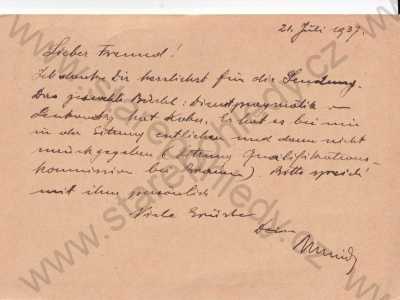 21. Juli 1937.
Lieber Freund!
Ich danke Dir herzlichst für die Sendung.
Das gesuchte Büchl: Dienstpragmatik v.
hat Er hat es bei mir
in der Sitzung entliehen und dann nicht
zurückgegeben (Sitzung Qualifikations-
kommission bei ) Bitte sprich
mit ihm persönlich
Viele Grüße
Dein
www.starepohledy.cz